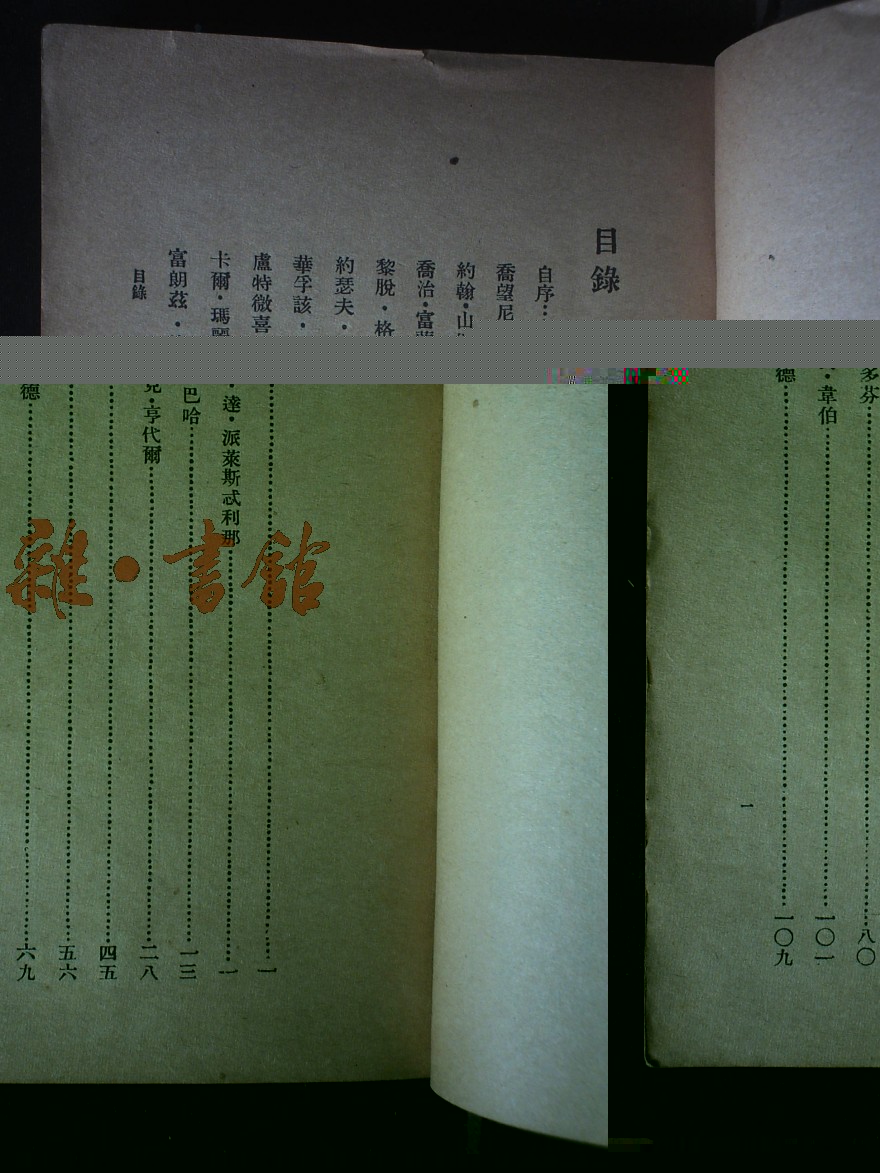 目錄
自序…一
喬望尼·達·派萊斯忒利那…一
約翰·巴哈…一三
喬治·富·亨代爾…二八
黎脫·格…四五
約瑟夫·…五六
華孚該·德…六九
盧特微喜多芬…八〇
卡爾·瑪·韋伯…一〇一
富朗茲·德…一〇九
目錄
一
雜·書館